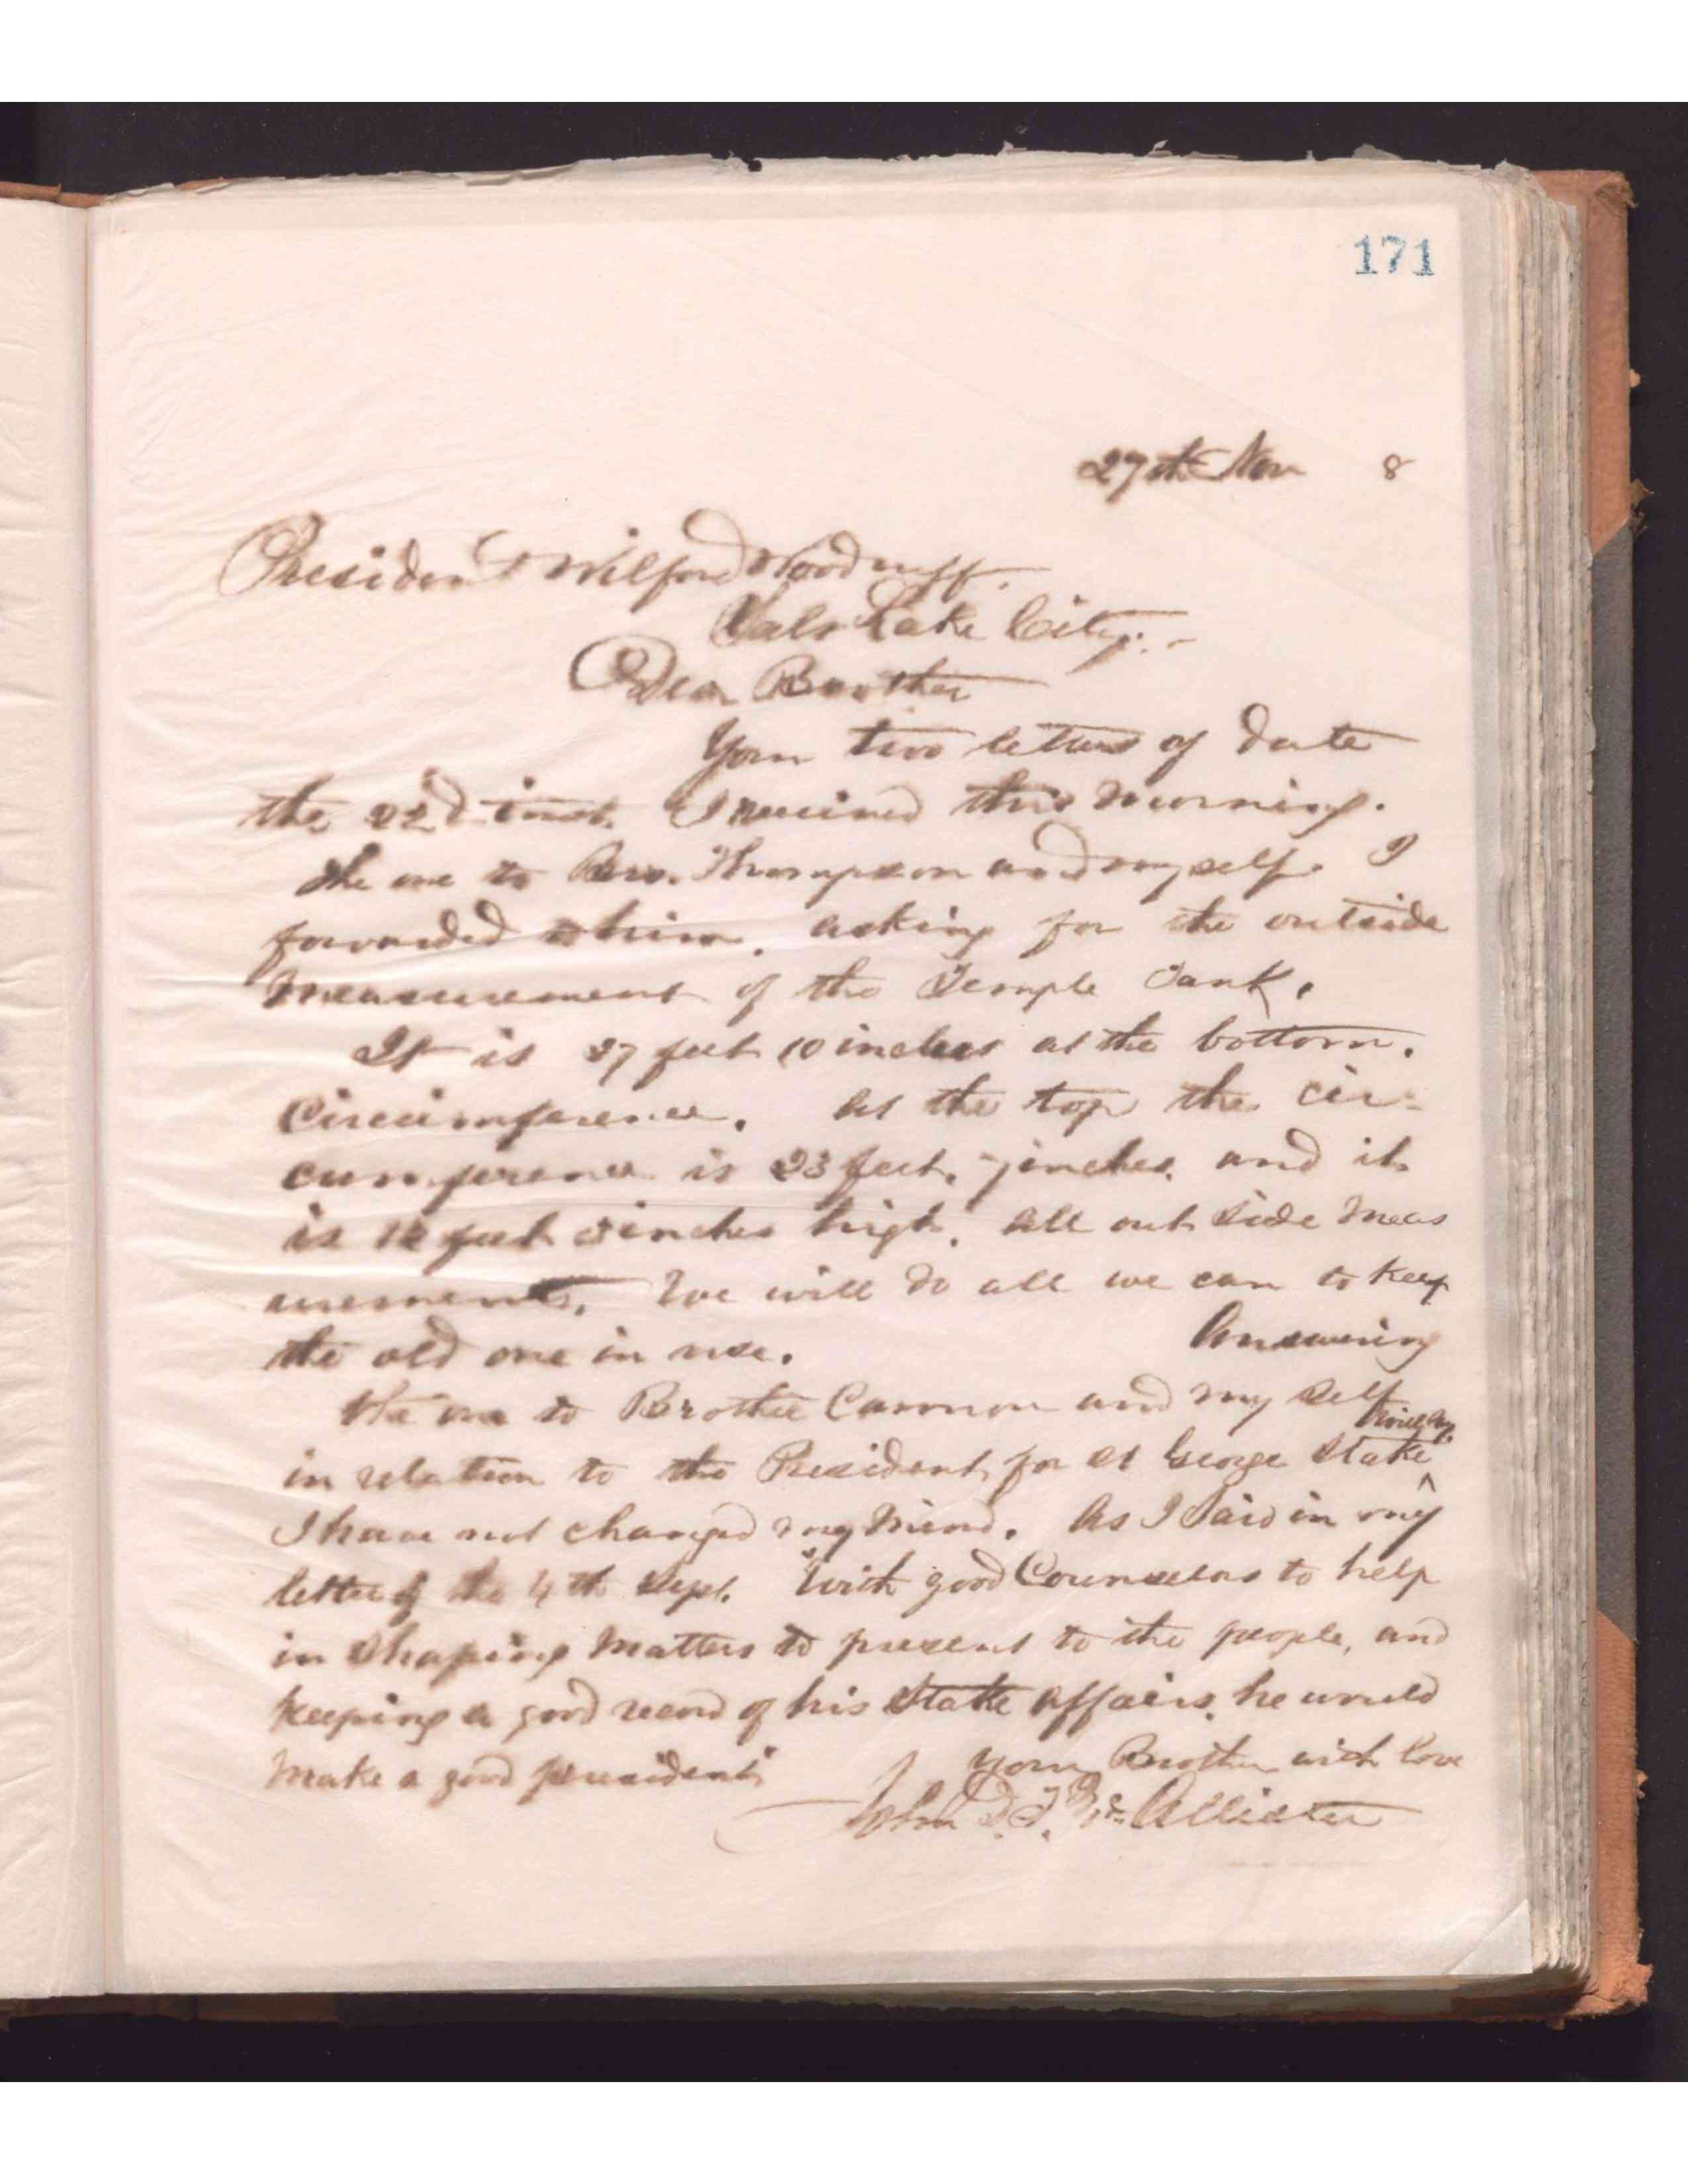 171
27th Nov 8
President Wilford Woodruff.
Salt Lake City:-
Dear Brother
Your two letters of date
the 22d inst. I received this morning.
the one to Bro. Thompson and myself. I
forwarded to him. asking for the outside
Measurement of the Temple Tank.
It is 27 feet 10 inches at the bottom.
Circumference. At the top the cir-
cumference is 23 feet. 7 inches. and it
is feet inches high. All out side Meas
urements. We will do all we can to keep
the old one in use. Answering
the one to Brother Cannon and my self
in relation to the President for St George Stake
I have not changed my Mind. As I Said in my
letter of the 4th Sept. "With good Counselors to help
in Shaping Matters to present to the people, and
keeping a good record of his Stake affairs. he would
Make a good president
Your Brother with Love
John D. T. McAllister